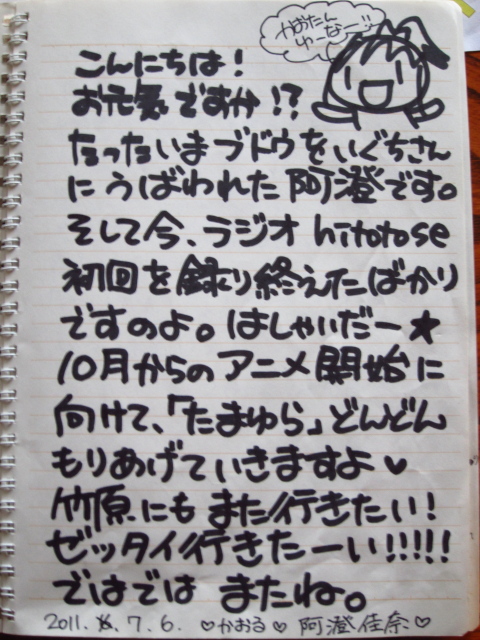 かおたん
ゆーなー!!
こんにちは!
お元気ですか!?
たったいまブドウをいぐちさん
にうばわれた阿澄です。
そして今、ラジオhitotose
初回を録り終えたばかり
ですのよ。はしゃいだー★
10月からのアニメ開始に
向けて、「たまゆら」どんどん
もりあげていきますよ♥
竹原にもまた行きたい!
ゼッタイ行きたーい!!!!!
ではでは またね。
2011. 7. 6. ♡かおる♡ 阿澄佳奈♡